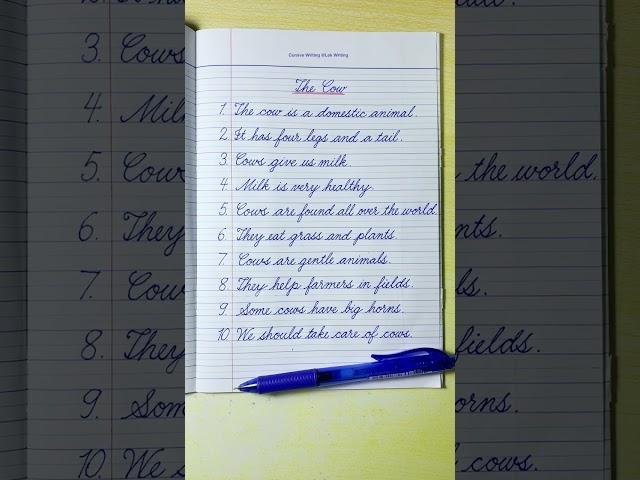 Cursive Writing @Lek Writing
The Cow
1. The cow is a domestic animal.
2. It has four legs and a tail.
3. Cows give us milk.
4. Milk is very healthy.
5. Cows are found all over the world.
6. They eat grass and plants.
7. Cows are gentle animals.
8. They help farmers in fields.
9. Some cows have big horns.
10. We should take care of cows.